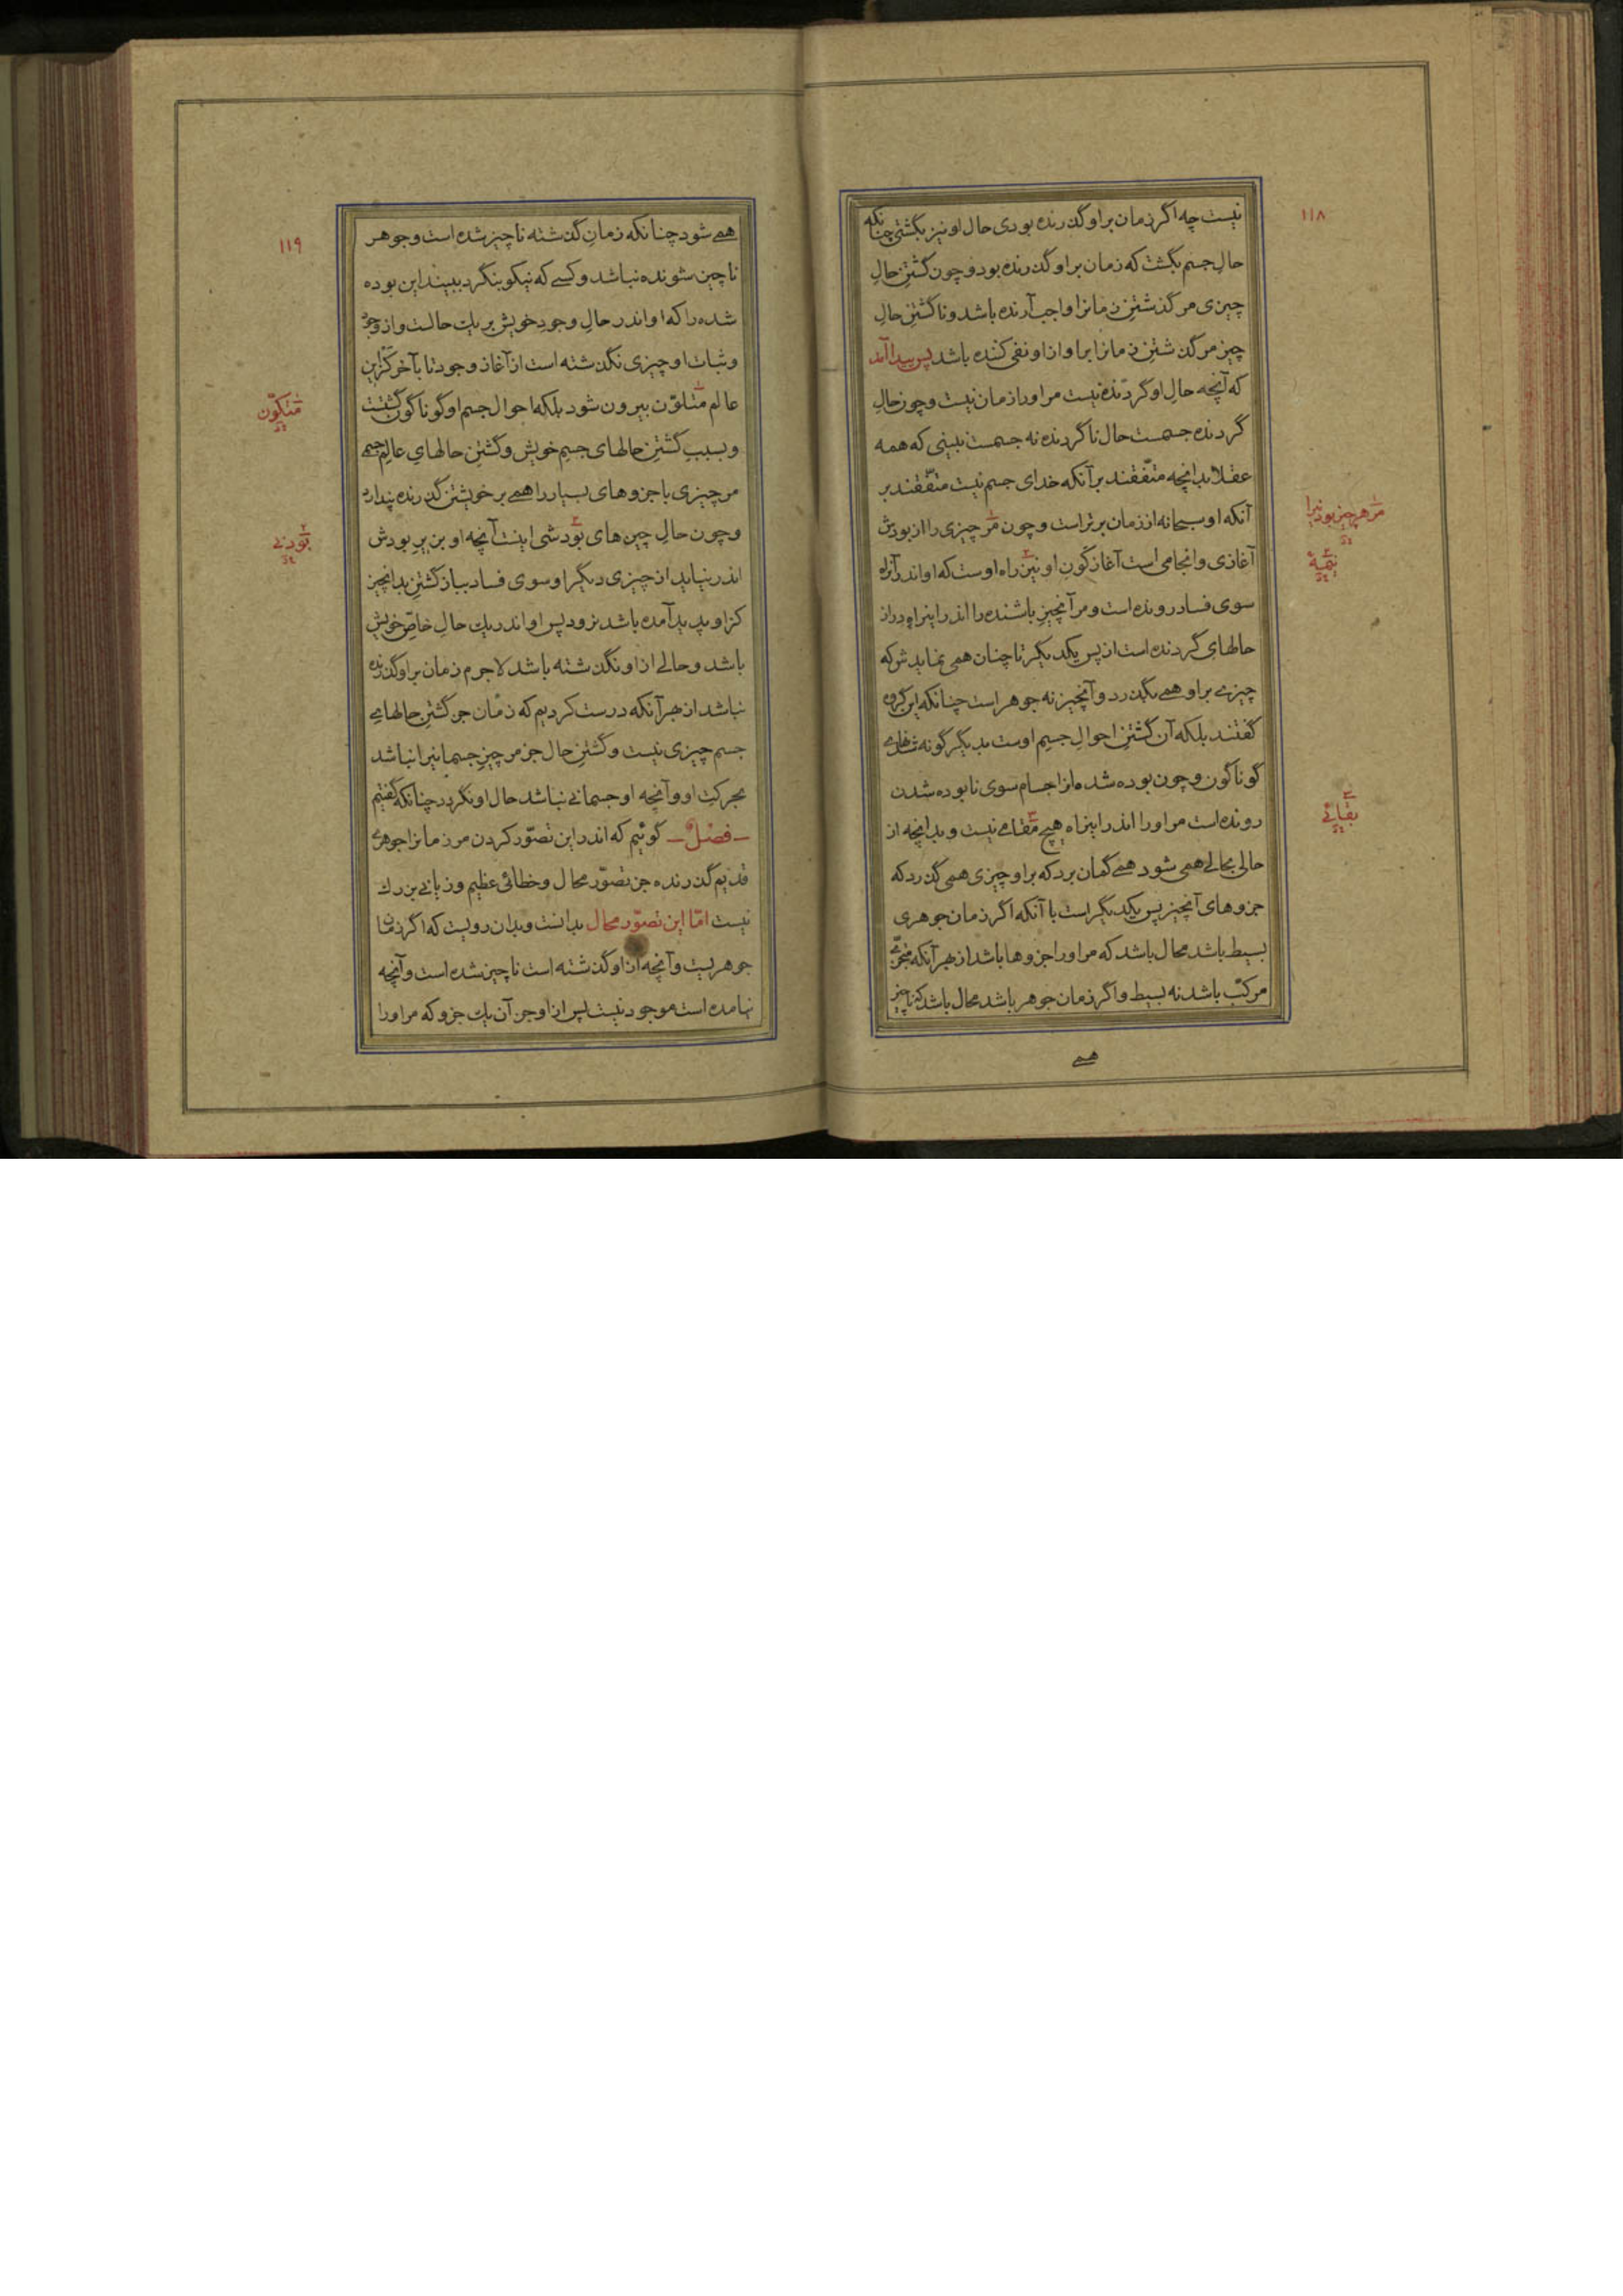 ۱۱۸
نیست چه اگر زمان بر او گذرنده بودی حال او نیز بگشتی چنانکه
حالِ جسم بگشت که زمان بر او گذرنده بود و چون گشتنِ حالِ
چیزی مر گذشتنِ زمانرا واجب آرنده باشد و ناگشتنِ حالِ
چیز مر گذشتنِ زمانرا بر او از او نفی کننده باشد پس پیدا آمد
که آنچه حالِ او گردنده نیست مر او را زمان نیست و چون حالِ
گردنده جسمست حال ناگردنده نه جسمست نبینی که همه
عقلا بدانچه متّفقند بر آنکه خدای جسم نیست متّفقند بر
آنکه او سبحانه از زمان برتر است و چون مر چیزی را از بودش
آغازی و انجامی است آغاز کَون او نیز راه اوست که او اندر آن راه
سوی فساد رونده است و مر آنچیزِ باشنده را اندر اینراه دراز
حالهای گردنده است از پس یکدیگر تا چنان همی نمایدش که
چیزی بر او همی بگذرد و آنچیز نه جوهر است چنانکه این گروه
گفتند بلکه آن گشتنِ احوالِ جسمِ اوست بدیگر گونه
گوناگون و چون بوده شده از اجسام سوی نابوده شدن
رونده است مر او را اندر اینراه هیچ مقامی نیست و بدانچه از
حالی بحالی همی شود همی گمان برد که بر او چیزی همی گذرد که
جزوهای آنچیز پس یکدیگر است با آنکه اگر زمان جوهری
بسیط باشد محال باشد که مر او را جزوها باشد از بهر آنکه متجزّی
مرکّب باشد نه بسیط و اگر زمان جوهر باشد محال باشد که ناچیز
همی
مر هر چیز بودنیرا
بقائی
۱۱۹
همی شود چنانکه زمانِ گذشته ناچیز شده است و جوهر
ناچیز شونده نباشد و کسی که نیکو بنگرد ببیند این بوده
شده را که او اندر حالِ وجودِ خویش بر یک حالست و از وجود
و ثبات او چیزی نگذشته است از آغاز وجود تا بآخر کزین
عالم متلوّن بیرون شود بلکه احوال جسم او گوناگون گشتست
و بسببِ گشتنِ حالهای جسمِ خویش و گشتنِ حالهایِ عالمِ جسم
مر چیزی با جزوهای بسیار را همی بر خویشتن گذرنده پندارد
و چون حالِ چیزهای بودشی اینست آنچه او بزیرِ بودش
اندر نیاید از چیزی دیگر او سوی فساد بباز گشتن بدانچیز
کز او پدید آمده باشد نرود پس او اندر یک حالِ خاصّ خویش
باشد و حالی از او نگذشته باشد لاجرم زمان بر او گذرنده
نباشد از بهر آنکه درست کردیم که زمان جز گشتنِ حالهای
جسم چیزی نیست و گشتنِ حال جز مر چیزِ جسمانیرا نباشد
بحرکتِ او و آنچه او جسمانی نباشد حال او نگردد چنانکه گفتیم
فصل گوئیم که اندر این تصوّر کردن مر زمانرا جوهری
قدیم گذرنده جز تصوّر محال و خطائی عظیم و زیانی بزرگ
نیست امّا این تصوّر محال بدانست و بدان رویست که اگر زمان
جوهریست و آنچه از او گذشته است ناچیز شده است و آنچه
نیامده است موجود نیست پس از او جز آن یک جزو که مر او را
متکوّن
بودنی